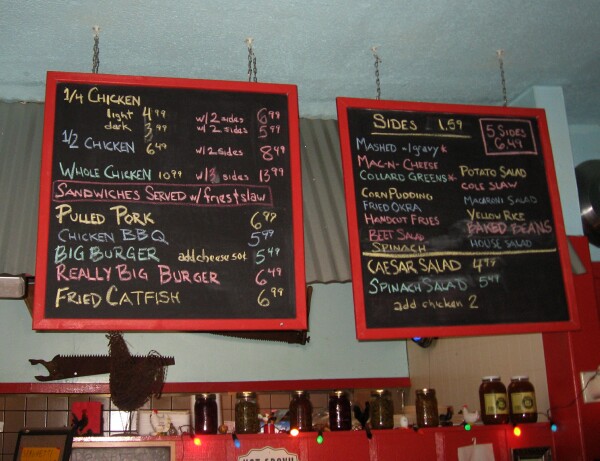 1/4 CHICKEN
light 4.99 w/2 sides 6.99
dark 3.99 w/2 sides 5.99
1/2 CHICKEN 6.49 w/2 sides 8.49
WHOLE CHICKEN 10.99 w/3 sides 13.99
SANDWICHES SERVED w/ fries + slaw
PULLED PORK 6.99
CHICKEN BBQ 5.99
BIG BURGER add cheese 50¢ 5.49
REALLY BIG BURGER 6.49
FRIED CATFISH 6.99
SIDES 1.59
5 SIDES
6.49
MASHED - 1 gravy*
MAC-N-CHEESE
COLLARD GREENS*
CORN PUDDING
FRIED OKRA
HANDCUT FRIES
BEET SALAD
SPINACH
POTATO SALAD
COLE SLAW
MACARONI SALAD
YELLOW RICE
BAKED BEANS
HOUSE SALAD
CAESAR SALAD 4.99
SPINACH SALAD 5.49
add chicken 2